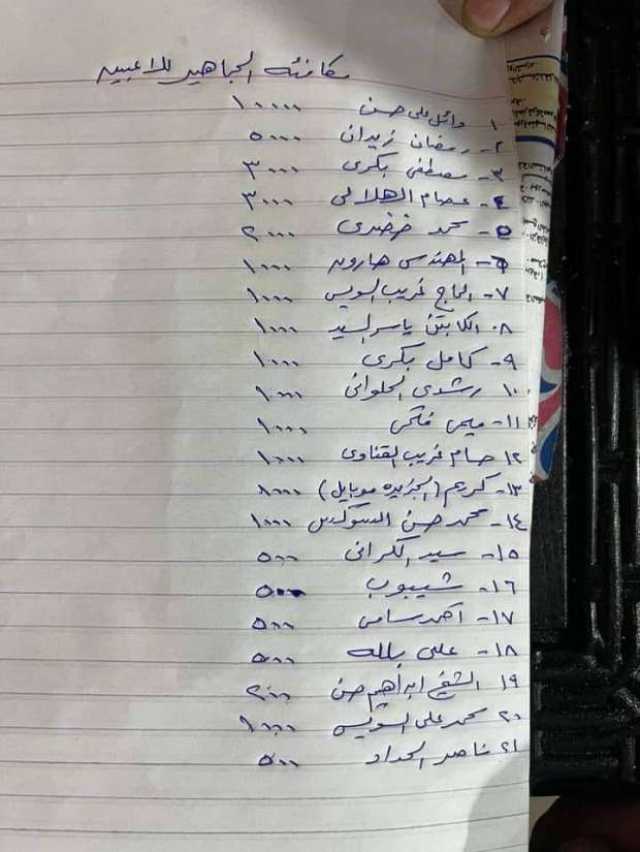 مكافئه الجماهير للاعبين
١ وائل على حسن ١٠٠٠٠
٢- رمضان زيدان ٥٠٠٠
٣- مصطفى بكرى ٣٠٠٠
٤- عصام الهلالى ٣٠٠٠
٥- محمد ٢٠٠٠
٦- المهندس هارون ١٠٠٠
٧- الحاج غريب السويس ١٠٠٠
٨- الكابتن ياسر السيد ١٠٠٠
٩- كامل بكرى ١٠٠٠
١٠- رشدى الحلوانى ١٠٠٠
١١- ميمى فكرى ١٠٠٠
١٢ حسام غريب القناوى ١٠٠٠
١٣- كريم (الجزيره موبايل) ١٠٠٠
١٤- محمد حسن السوكس ١٠٠٠
١٥- سيد الكرانى ٥٠٠
١٦- شيبوب ٥٠٠
١٧- احمد سامى ٥٠٠
١٨- على بالله ٥٠٠
١٩ الشيخ ابراهيم حسن ٢٠٠
٢٠ محمد على السويس ١٠٠٠
٢١ ناصر الحداد ٥٠٠